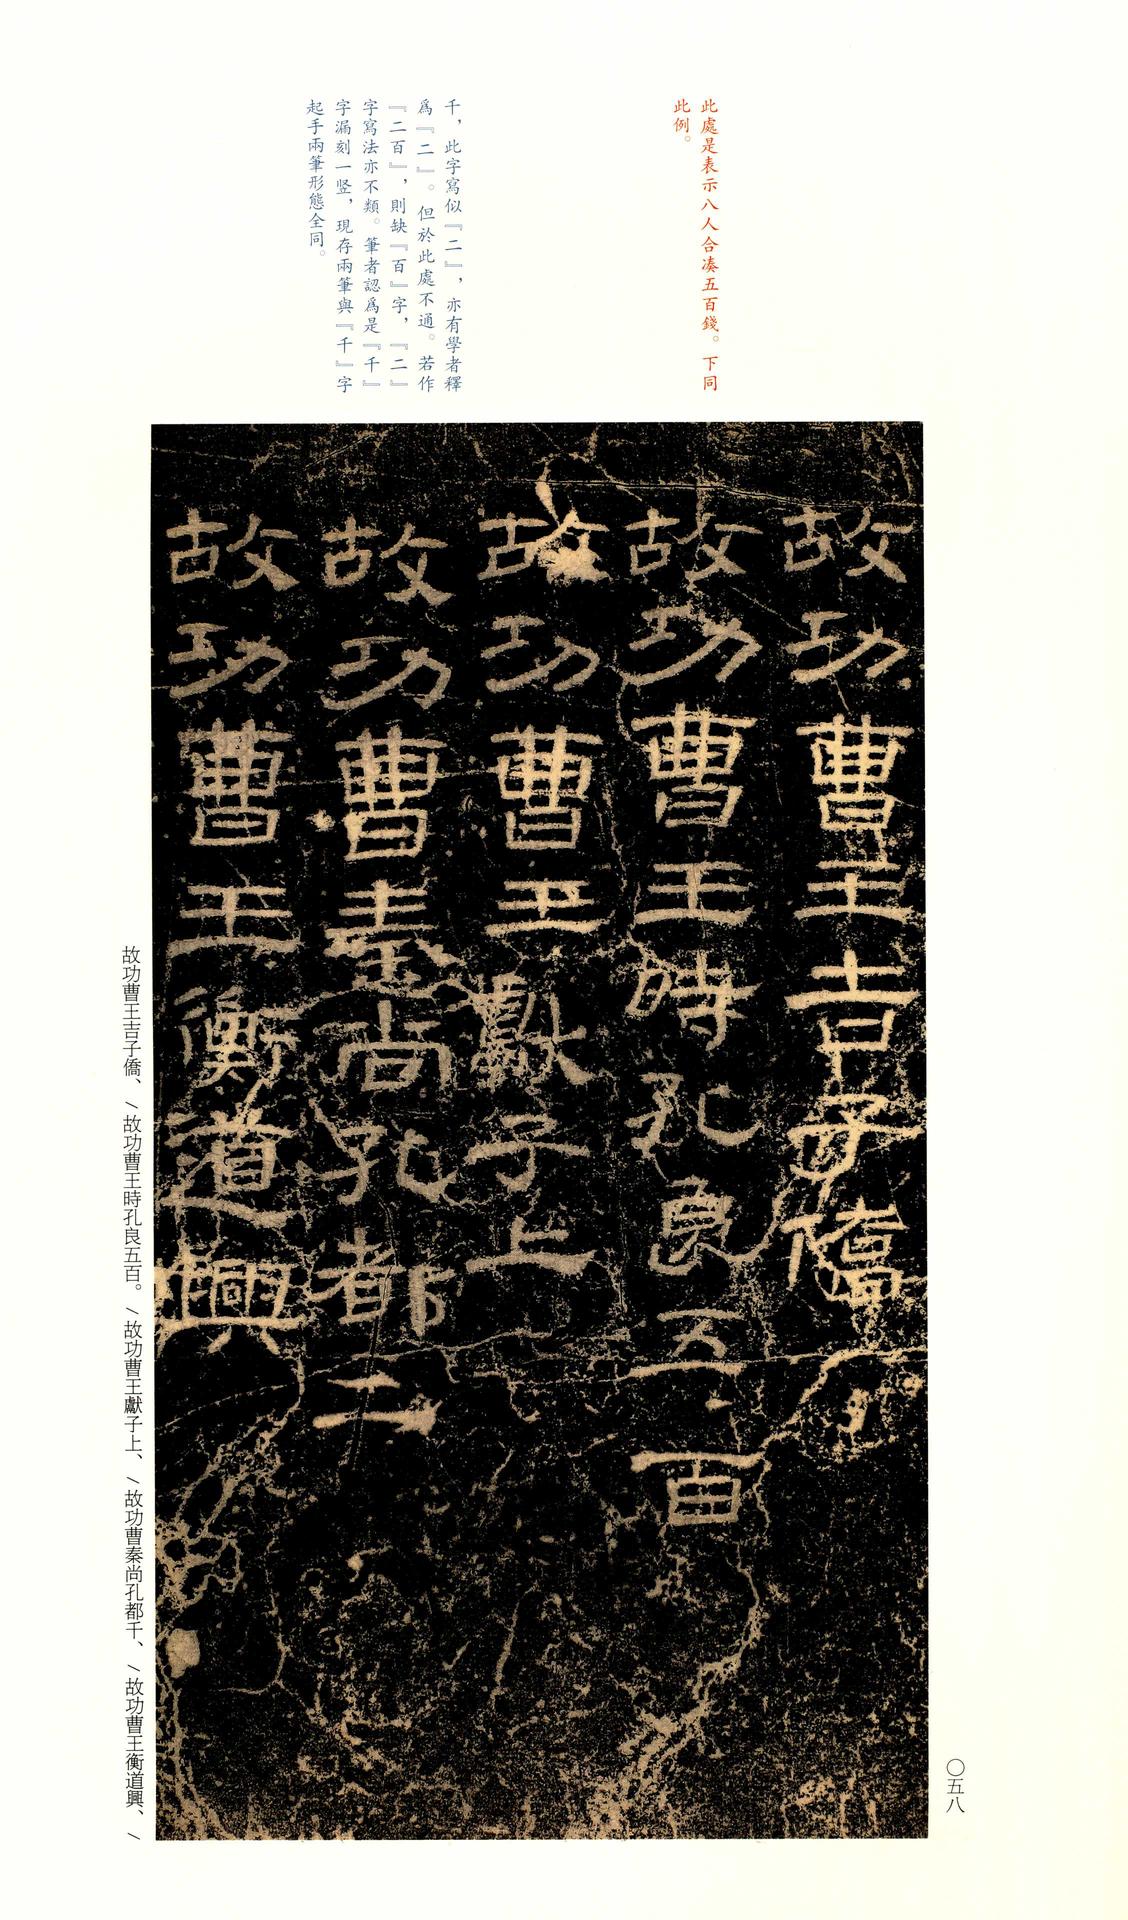 此處是表示八人合湊五百錢。下同
此例。
千，此字寫似『二』，亦有學者釋
爲『二』。但於此處不通。若作
『二百』，則缺『百』字，『二』
字寫法亦不類。筆者認爲是『千』
字漏刻一竖，現存兩筆與『千』字
起手兩筆形態全同。
故功曹王吉子僑
故功曹王時孔良五百
故功曹王獻子上
故功曹秦尚孔都二
故功曹王衡道興
故功曹王吉子僑、/故功曹王時孔良五百。/故功曹王獻子上、/故功曹秦尚孔都千、/故功曹王衡道興、/
〇五八